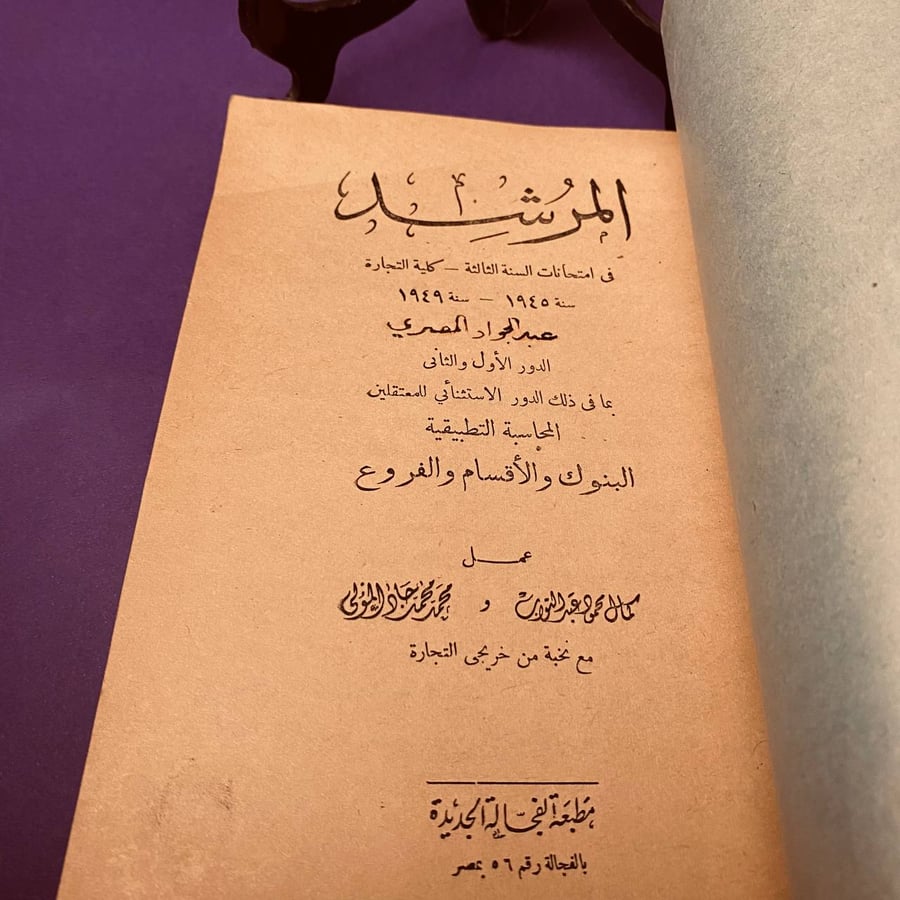 المرُشِد
فى امتحانات السنة الثالثة – كلية التجارة
سنة ١٩٤٥ – سنة ١٩٤٩
عبد الجواد المصري
الدور الأول والثانى
بما فى ذلك الدور الاستثنائي للمعتقلين
المحاسبة التطبيقية
البنوك والأقسام والفروع
عمل
كمال محمود عبد التواب و محمد محمد جاد المولى
مع نخبة من خريجى التجارة
مطبعَة الفجّالة الجديدة
بالفجالة رقم ٥٦ بمصر